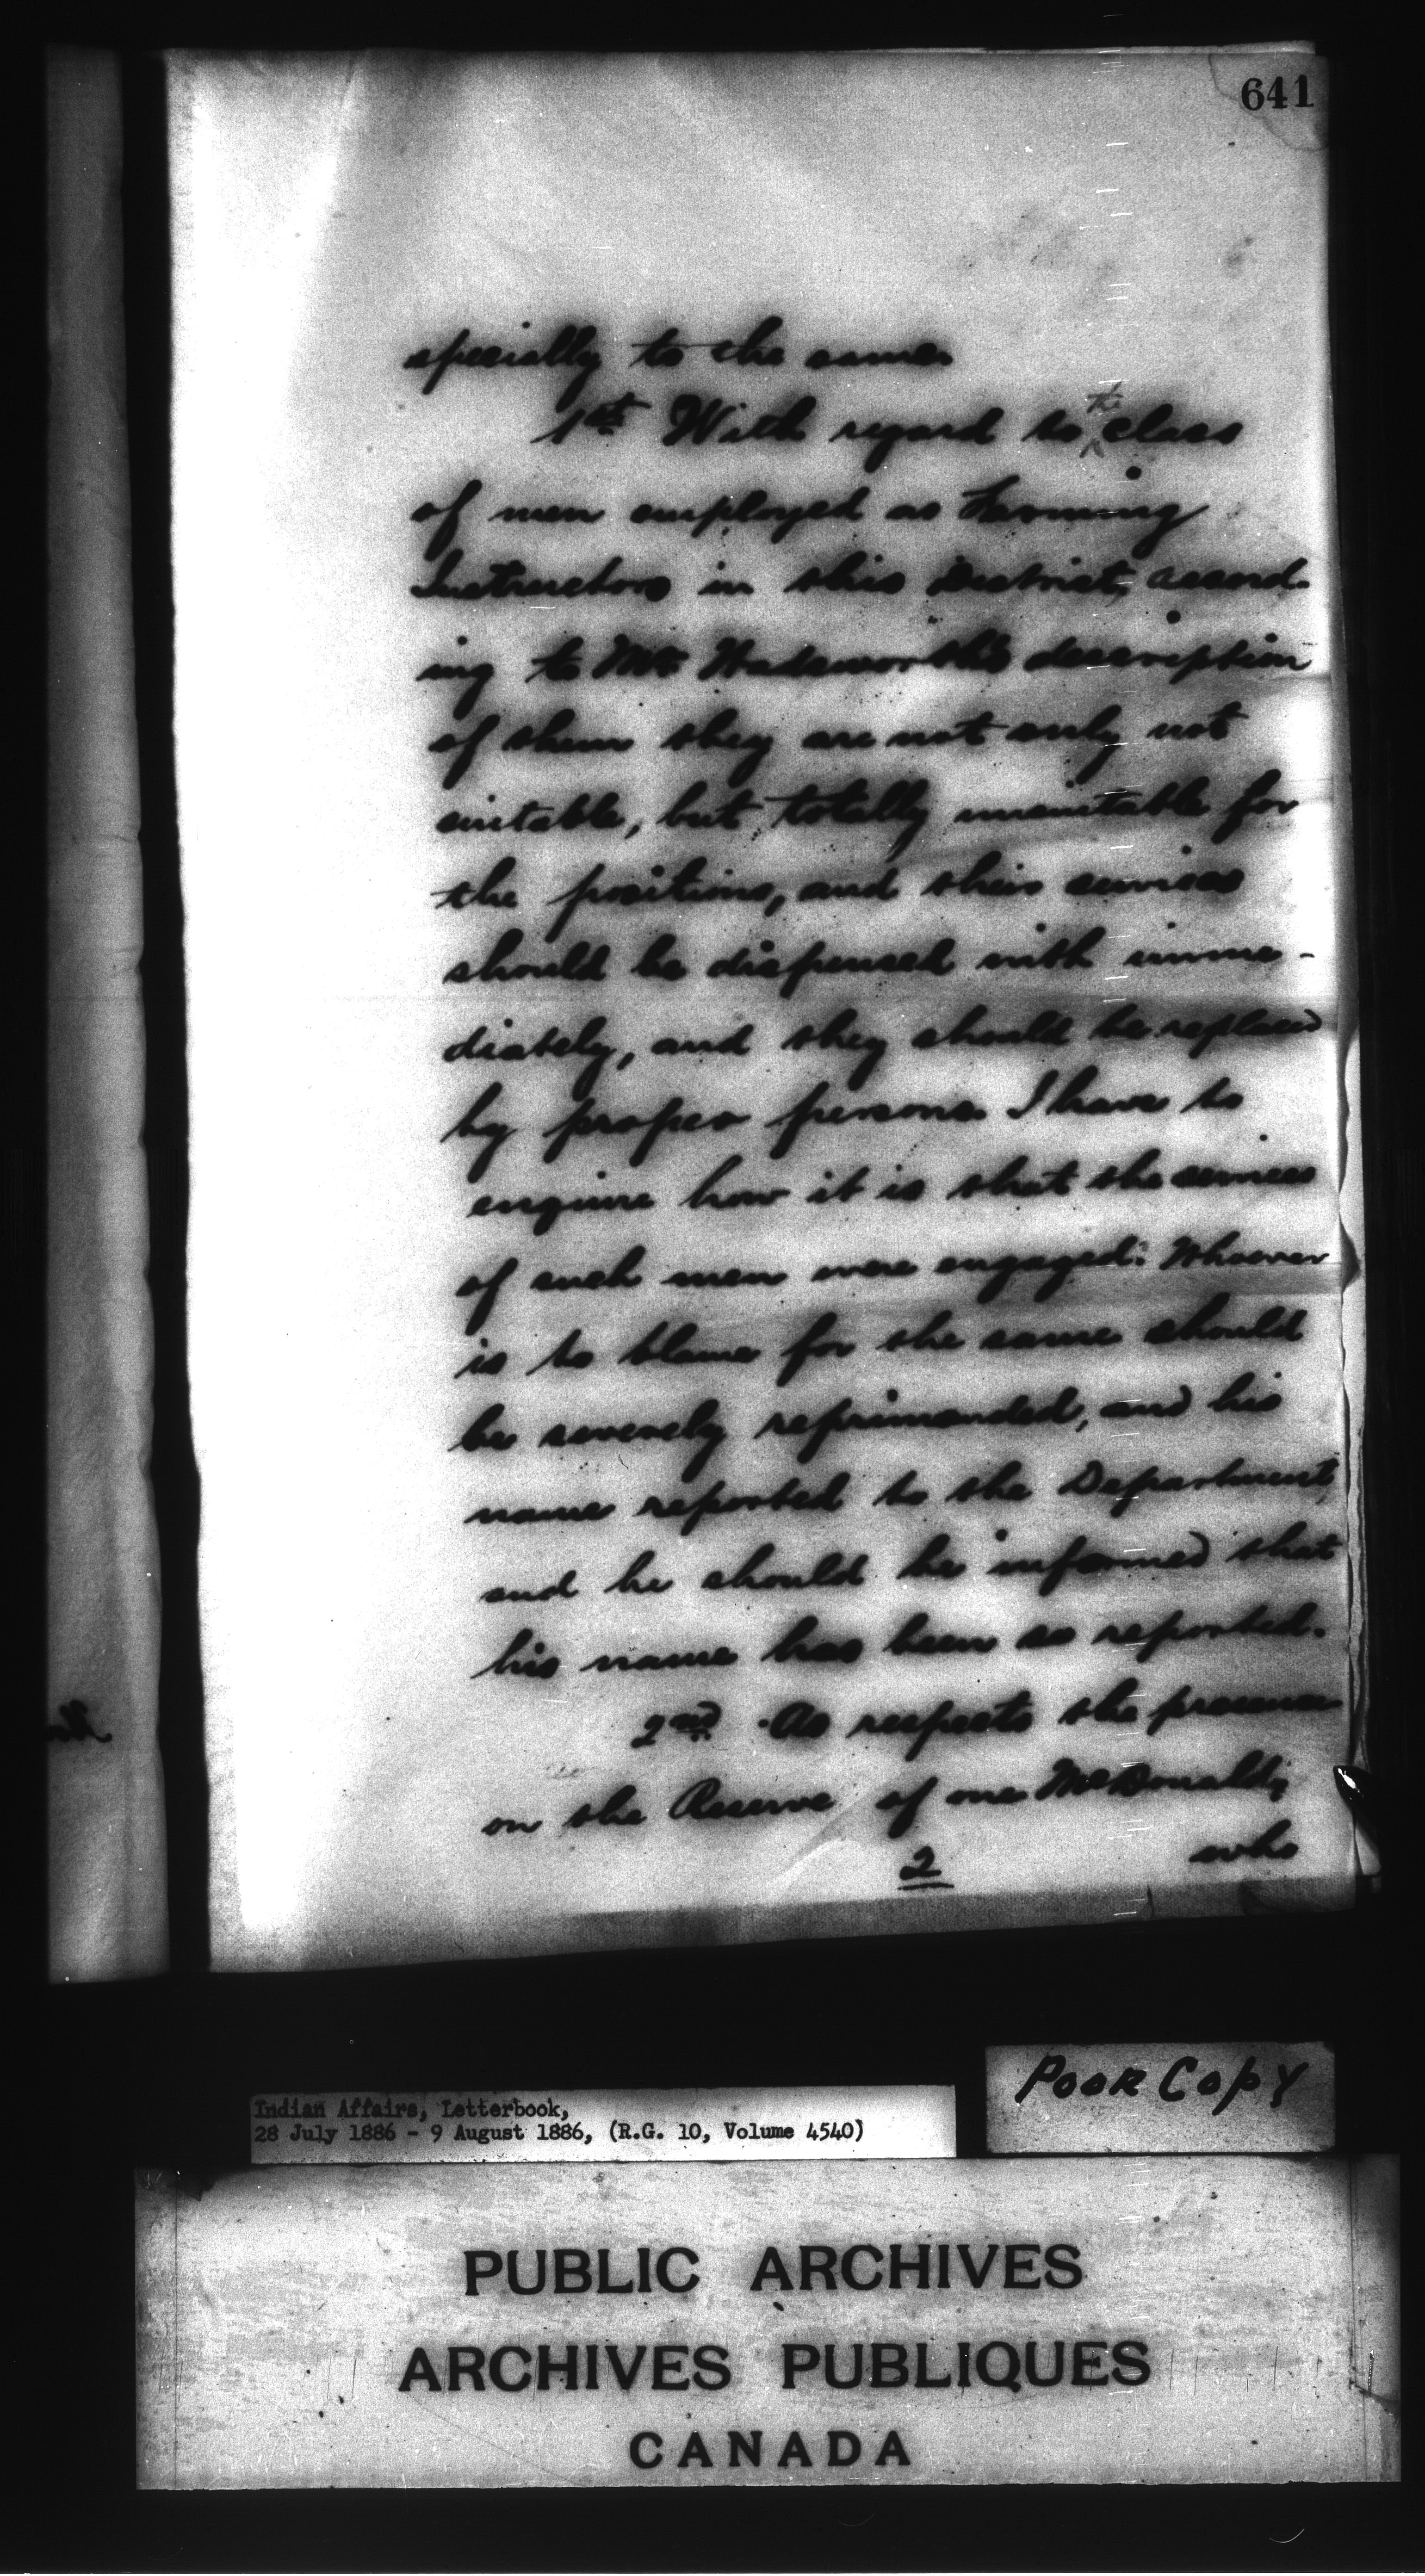 641
specially to the same.
1st With regard to the class
of men employed as Farming
Instructors in this District, accord-
ing to Mr. Wadsworth's description
of them they are not only not
suitable, but totally unsuitable for
the positions, and their services
should be dispensed with imme-
diately, and they should be replaced
by proper persons. I have to
enquire how it is that the services
of such men were engaged. Whoever
is to blame for the same should
be severely reprimanded, and his
name reported to the Department,
and he should be informed that
his name has been so reported.
2nd As respects the presence
on the Reserve of one McDonald,
2 who
Poor Copy
Indian Affairs, Letterbook,
28 July 1886 - 9 August 1886, (R.G. 10, Volume 4540)
PUBLIC ARCHIVES
ARCHIVES PUBLIQUES
CANADA